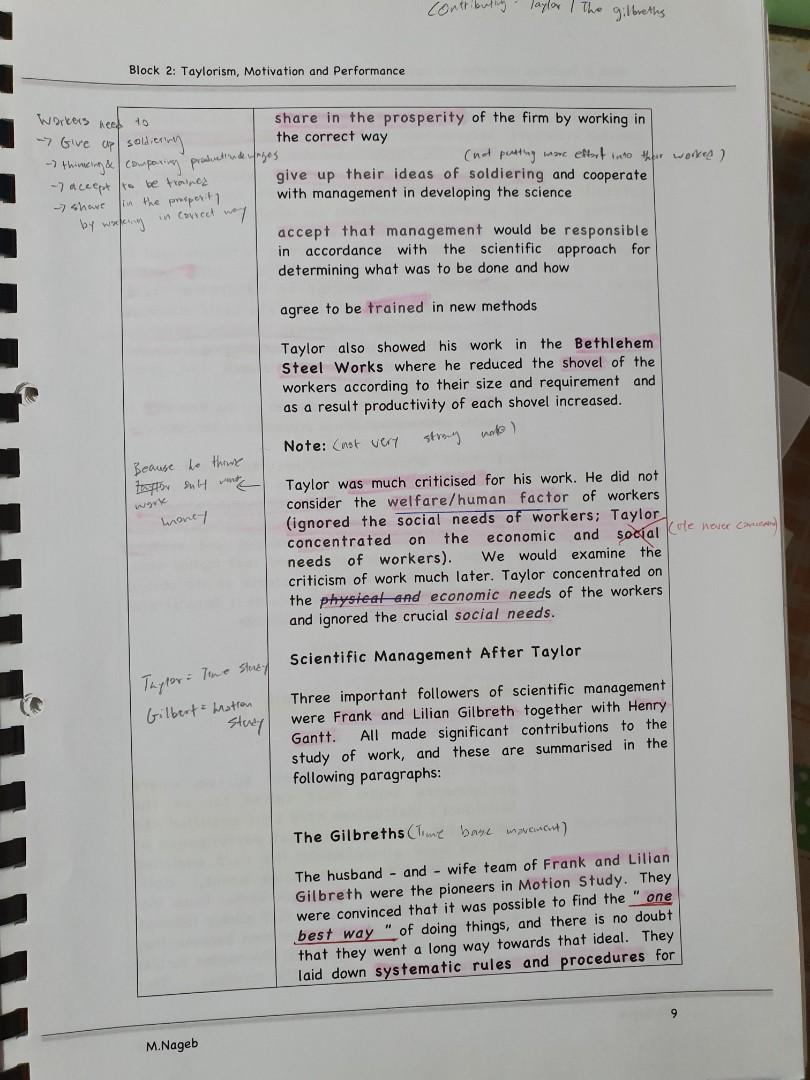 Contributing - Taylor / The gilbreths
Block 2: Taylorism, Motivation and Performance
Workers need to
→ Give up soldiering
→ thinking & comparing production & wages
→ accept to be trained
→ share in the prosperity
by working in correct way
share in the prosperity of the firm by working in
the correct way
(not putting more effort into their worked)
give up their ideas of soldiering and cooperate
with management in developing the science
accept that management would be responsible
in accordance with the scientific approach for
determining what was to be done and how
agree to be trained in new methods
Taylor also showed his work in the Bethlehem
Steel Works where he reduced the shovel of the
workers according to their size and requirement and
as a result productivity of each shovel increased.
Note: (not very strong note)
Because he think
work
money
Taylor was much criticised for his work. He did not
consider the welfare/human factor of workers
(ignored the social needs of workers; Taylor
concentrated on the economic and social
needs of workers). We would examine the
criticism of work much later. Taylor concentrated on
the physical and economic needs of the workers
and ignored the crucial social needs.
never
Scientific Management After Taylor
Taylor = Time study
Gilbert = Motion
Study
Three important followers of scientific management
were Frank and Lilian Gilbreth together with Henry
Gantt. All made significant contributions to the
study of work, and these are summarised in the
following paragraphs:
The Gilbreths (Time base movement)
The husband - and - wife team of Frank and Lilian
Gilbreth were the pioneers in Motion Study. They
were convinced that it was possible to find the " one
best way " of doing things, and there is no doubt
that they went a long way towards that ideal. They
laid down systematic rules and procedures for
9
M.Nageb